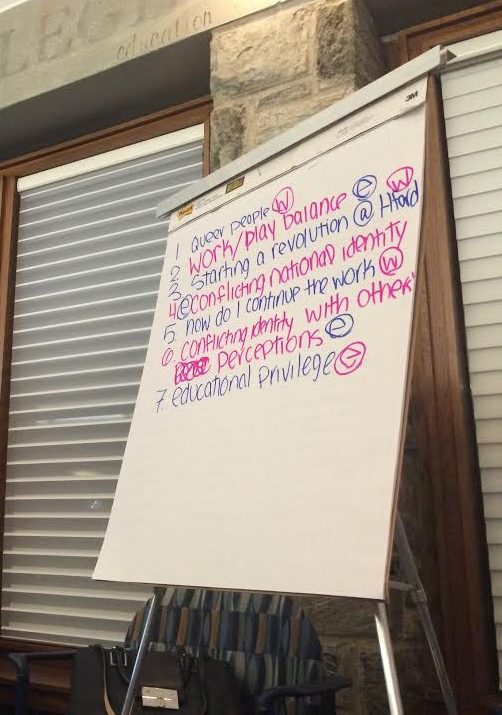 LEGE
education
3M
1 Queer People W
2. WORK/Play balance e W
3. Starting a revolution @ Hford
4. e conflicting national identity
5. how do I continue the work W
6. conflicting identity with others'
Perceptions e
7. educational Privilege e